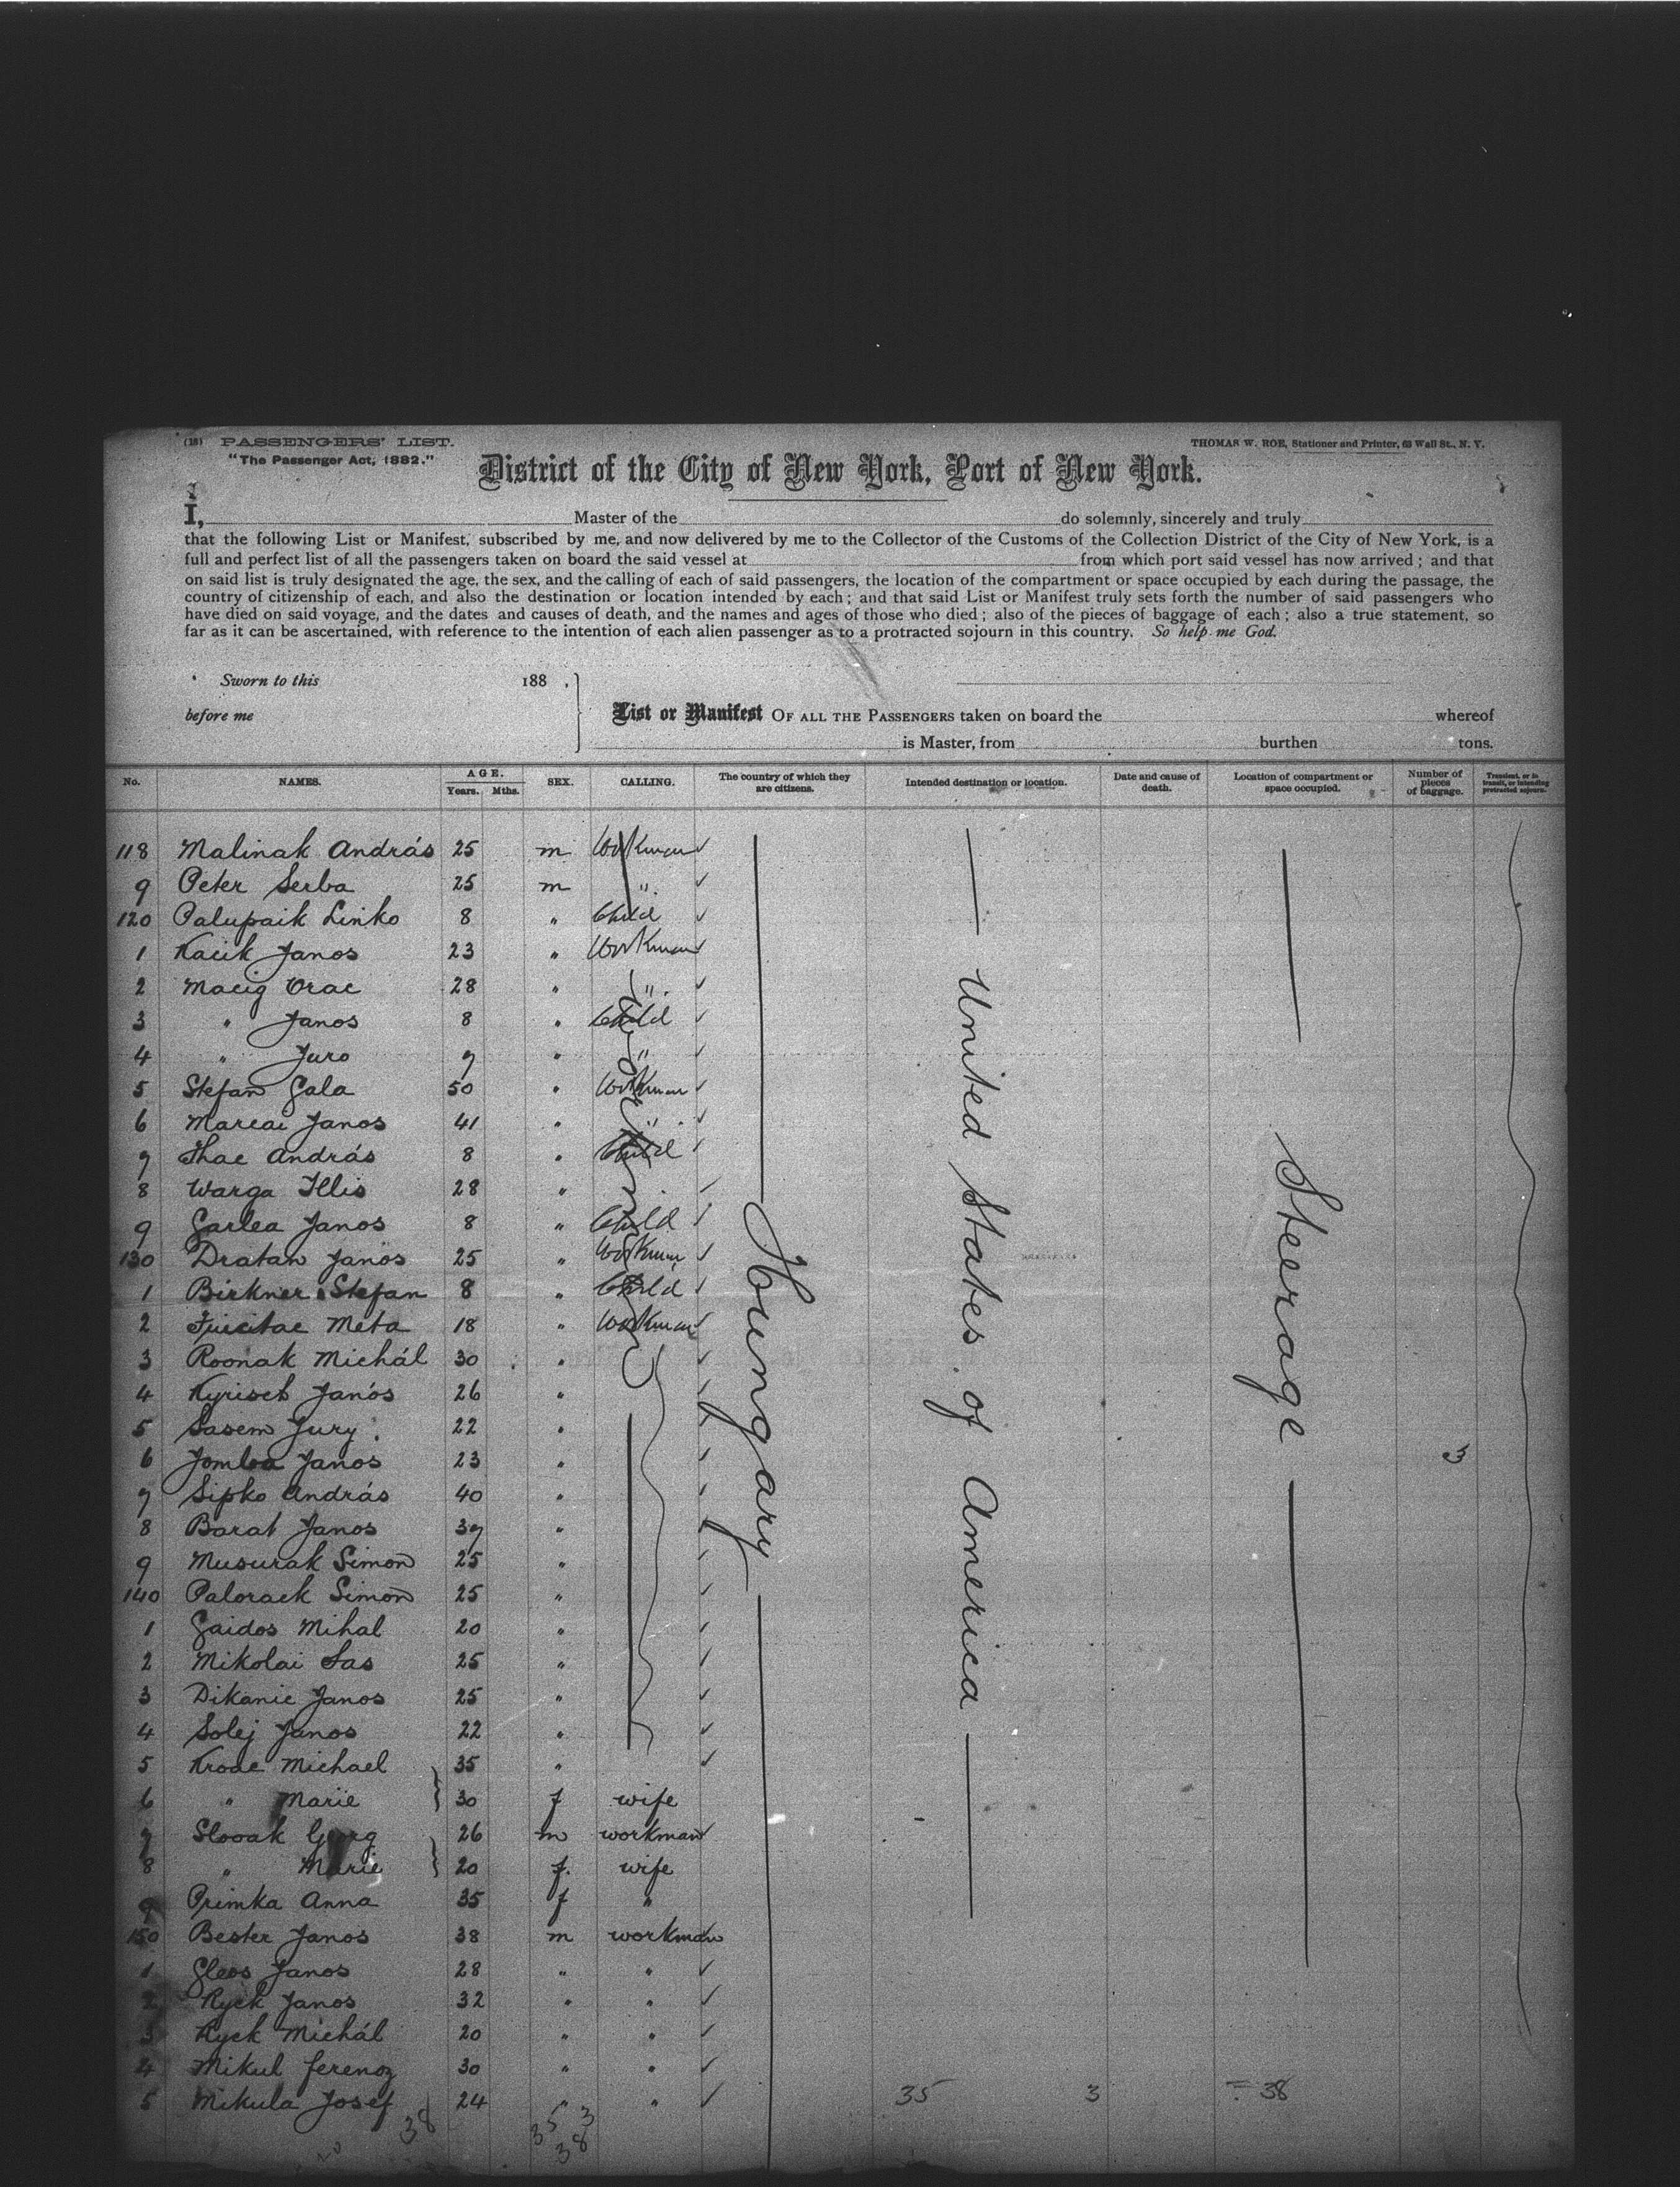 (18) PASSENGERS' LIST.
"The Passenger Act, 1882."
THOMAS W. ROE, Stationer and Printer, 63 Wall St., N. Y.
District of the City of New York, Port of New York.
I, Master of the do solemnly, sincerely and truly
that the following List or Manifest, subscribed by me, and now delivered by me to the Collector of the Customs of the Collection District of the City of New York, is a
full and perfect list of all the passengers taken on board the said vessel at from which port said vessel has now arrived; and that
on said list is truly designated the age, the sex, and the calling of each of said passengers, the location of the compartment or space occupied by each during the passage, the
country of citizenship of each, and also the destination or location intended by each; and that said List or Manifest truly sets forth the number of said passengers who
have died on said voyage, and the dates and causes of death, and the names and ages of those who died; also of the pieces of baggage of each; also a true statement, so
far as it can be ascertained, with reference to the intention of each alien passenger as to a protracted sojourn in this country. So help me God.
Sworn to this 188 .
before me
List or Manifest OF ALL THE PASSENGERS taken on board the whereof
is Master, from burthen tons.
No. NAMES. AGE. Years. Mths. SEX. CALLING. The country of which they are citizens. Intended destination or location. Date and cause of death. Location of compartment or space occupied. Number of pieces of baggage. Transient, or in transit, or intending protracted sojourn.
118 Malinak András 25 m Workman
9 Peter Serba 25 m "
120 Palupaik Linko 8 " Child
1 Kacik Janos 23 " Workman
2 Macig Orac 28 " "
3 " Janos 8 " Child
4 " Juro 7 " "
5 Stefan Gala 50 " Workman
6 Marcai Janos 41 " "
7 Thac András 8 " Child
8 Warga Illis 28 "
9 Garlea Janos 8 " Child
130 Dratan Janos 25 " Workman
1 Birkner Stefan 8 " Child
2 Meta 18 " Workman
3 Roonak Michál 30 "
4 Kyrisch Janós 26 "
5 Sasem Jury 22 "
6 Jomloa Janos 23 "
7 Sipko András 40 "
8 Barat Janos 37 "
9 Musurak Simon 25 "
140 Palorack Simon 25 "
1 Gaidos Mihal 20 "
2 Mikolai Sas 25 "
3 Dikanic Janos 25 "
4 Solej Janos 22 "
5 Krode Michael 35 "
6 " Marie 30 f wife
7 Slovak Georg 26 m workman
8 " Marie 20 f. wife
9 Primka Anna 35 f "
150 Bester Janos 38 m workman
1 Gleos Janos 28 " "
2 Ryck Janos 32 " "
3 Ryck Michál 20 " "
4 Mikul ferenz 30 " "
5 Mikula Josef 24 " "
Houngary
United States of America
Steerage
3
35 3 = 38
38
35 3
38